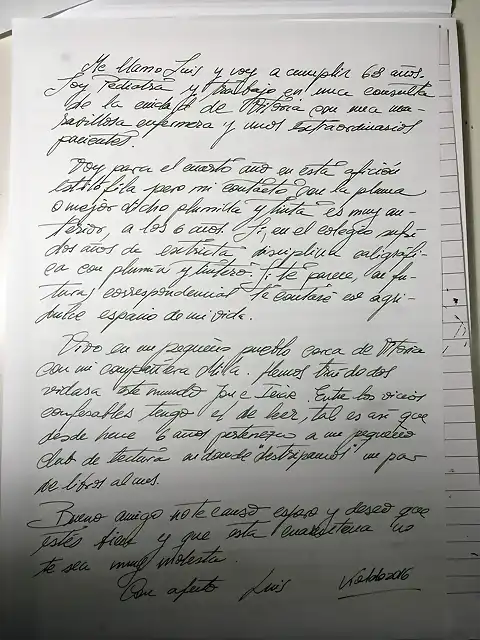 Me llamo Luis y voy a cumplir 68 años.
Soy Pediatra y trabajo en una consulta
de la ciudad de Vitoria con una ma-
ravillosa enfermera y unos extraordinarios
pacientes.
Voy para el cuarto año en esta afición
estilófila pero mi contacto con la pluma
o mejor dicho plumilla y tinta es muy an-
terior, a los 6 años. Sí, en el colegio sufrí
dos años de estricta disciplina caligráfi-
ca con plumín y tintero. Si te parece, en fu-
turas correspondencias te contaré ese agri-
dulce espacio de mi vida.
Vivo en un pequeño pueblo cerca de Vitoria
con mi compañera
vidas a este mundo, Jon e Irene. Entre los vicios
confesables tengo el de leer, tal es así que
desde hace 6 años pertenezco a un pequeño
club de lectura en donde "destripamos" un par
de libros al mes.
Bueno amigo no te canso
estés bien y que esta cuarentena no
te sea muy molesta.
Con afecto Luis